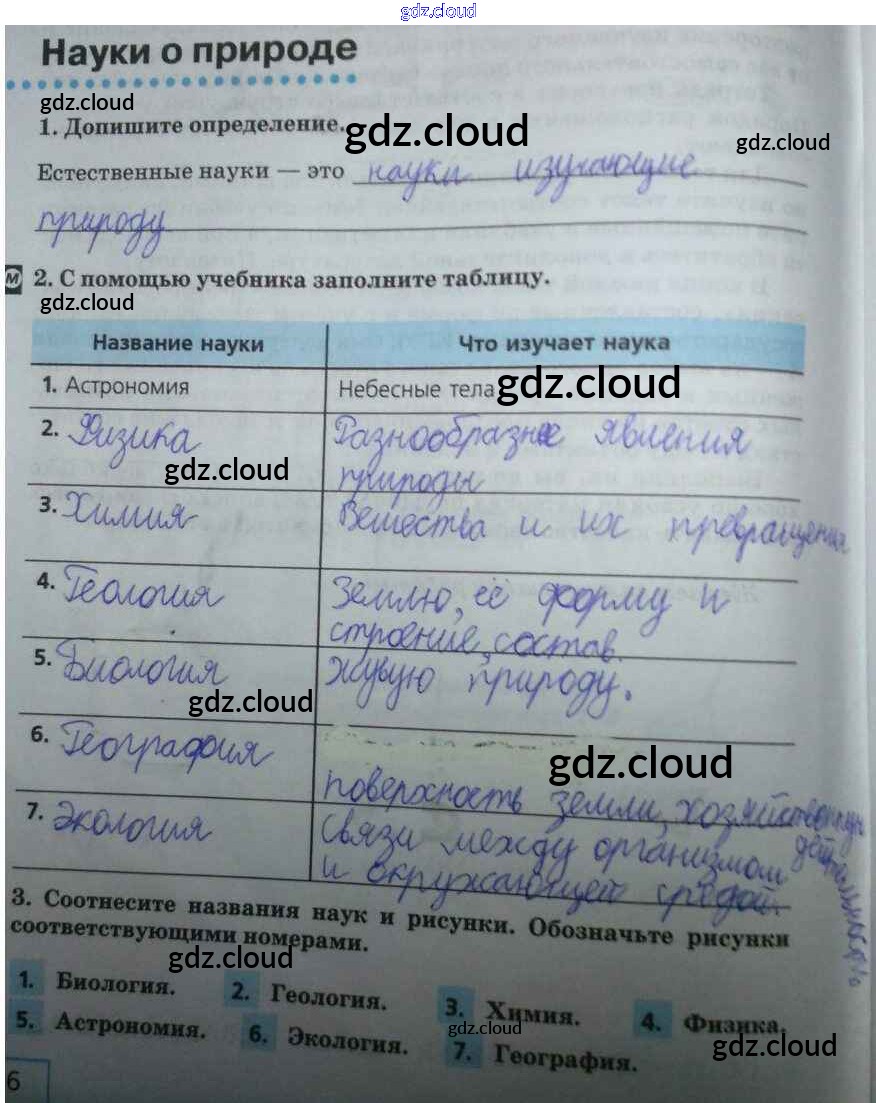 gdz.cloud
Науки о природе
gdz.cloud
1. Допишите определение.
gdz.cloud
gdz.cloud
Естественные науки — это науки изучающие
природу
М 2. С помощью учебника заполните таблицу.
gdz.cloud
Название науки Что изучает наука
1. Астрономия Небесные тела gdz.cloud
2. Физика Разнообразные явления
природы
gdz.cloud
3. Химия Вещества и их превращения
4. Геология Землю, её форму и
строение, состав.
5. Биология живую природу.
gdz.cloud
6. География
gdz.cloud
поверхность земли, хозяйственную
деятельность
7. Экология связи между организмом
и окружающей средой.
3. Соотнесите названия наук и рисунки. Обозначьте рисунки
соответствующими номерами.
gdz.cloud
1. Биология. 2. Геология. 3. Химия. 4. Физика.
5. Астрономия. 6. Экология. 7. География.
gdz.cloud
gdz.cloud
6